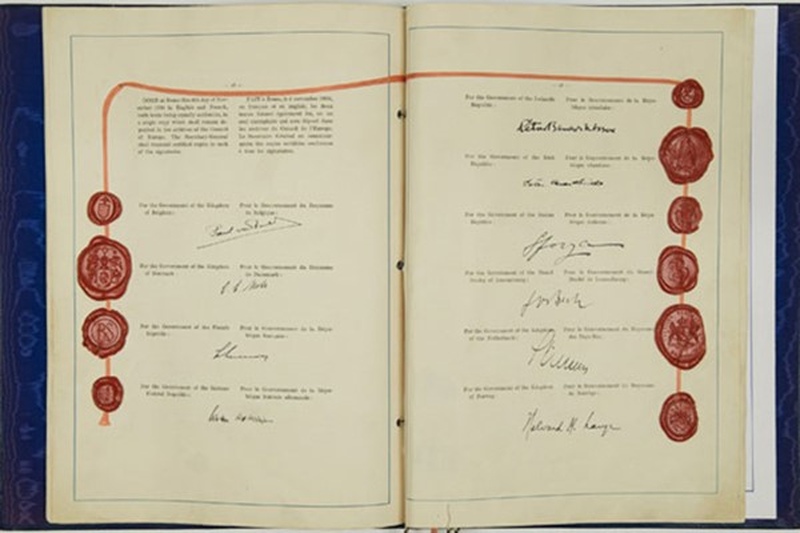 DONE at Rome this 4th day of
in English and French,
both texts being equally authentic, in
a single copy which shall remain
in the archives of the Council
of Europe. The Secretary-General
shall transmit certified copies to each
of the signatories.
FAIT à Rome, le 4 novembre 1950,
en français et en anglais, les deux
textes faisant également foi, en un
seul exemplaire qui sera déposé dans
les archives du Conseil de l'Europe.
Le Secrétaire Général en
des copies certifiées conformes
à tous les signataires.
For the Government of the Kingdom
of Belgium:
Pour le Gouvernement du Royaume
de Belgique:
For the Government of the Kingdom
of Denmark:
Pour le Gouvernement du Royaume
de Danemark:
For the Government of the French
Republic:
Pour le Gouvernement de la Répu-
blique française:
For the Government of the German
Federal Republic:
Pour le Gouvernement de la Répu-
blique fédérale allemande:
For the Government of the Icelandic
Republic:
Pour le Gouvernement de la Répu-
blique islandaise:
For the Government of the Irish
Republic:
Pour le Gouvernement de la Répu-
blique irlandaise:
For the Government of the Italian
Republic:
Pour le Gouvernement de la Répu-
blique italienne:
Sforza
For the Government of the Grand
Duchy of Luxembourg:
Pour le Gouvernement du Grand
Duché de Luxembourg:
Jos Bech
For the Government of the Kingdom
of the Netherlands:
Pour le Gouvernement du Royaume
des Pays-Bas:
For the Government of the Kingdom
of Norway:
Pour le Gouvernement du Royaume
de Norvège:
Halvard M. Lange